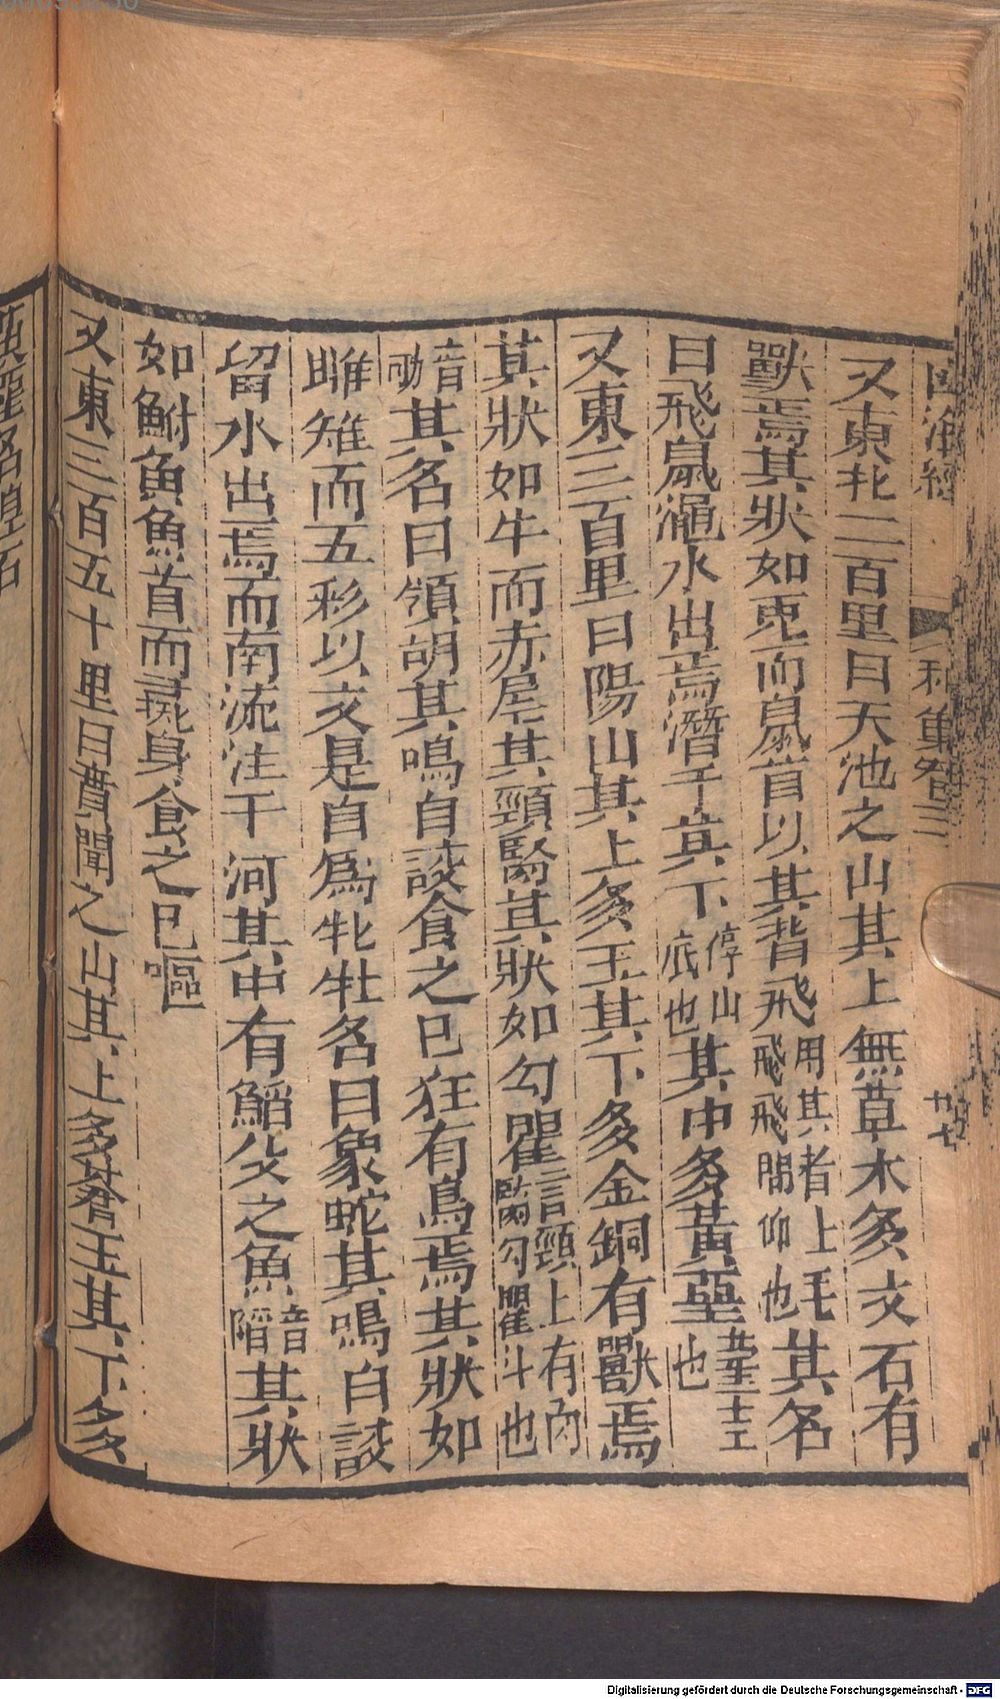 又東北二百里曰天池之山其上無草木多文石有
獸焉其狀如兎而鼠首以其背飛用其背上毛飛飛則仰也其名
曰飛鼠澠水出焉潛于其下停山底也其中多黃堊堊土也
又東三百里曰陽山其上多玉其下多金銅有獸焉
其狀如牛而赤尾其頸䐜其狀如勾瞿言頸上有肉䐜勾瞿斗也
音劬其名曰領胡其鳴自詨食之已狂有鳥焉其狀如
雌雉而五彩以文是自爲牝牡名曰象蛇其鳴自詨
留水出焉而南流注于河其中有鮥父之魚音陷其狀
如鮒魚魚首而彘身食之已嘔
又東三百五十里曰賁聞之山其上多蒼玉其下多
Digitalisierung gefördert durch die Deutsche Forschungsgemeinschaft - DFG